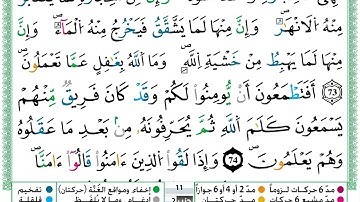 مِنْهُ الْأَنْهَٰرُ ۚ وَإِنَّ مِنْهَا لَمَا يَشَّقَّقُ فَيَخْرُجُ مِنْهُ الْمَآءُ ۚ وَإِنَّ
مِنْهَا لَمَا يَهْبِطُ مِنْ خَشْيَةِ اللَّهِ ۗ وَمَا اللَّهُ بِغَٰفِلٍ عَمَّا تَعْمَلُونَ
73 أَفَتَطْمَعُونَ أَنْ يُؤْمِنُوا۟ لَكُمْ وَقَدْ كَانَ فَرِيقٌ مِّنْهُمْ
يَسْمَعُونَ كَلَٰمَ اللَّهِ ثُمَّ يُحَرِّفُونَهُۥ مِنۢ بَعْدِ مَا عَقَلُوهُ
وَهُمْ يَعْلَمُونَ 74 وَإِذَا لَقُوا۟ الَّذِينَ ءَامَنُوا۟ قَالُوٓا۟ ءَامَنَّا
مدّ 6 حركات لزوماً مدّ 2 أو 4 أو 6 جوازاً 11 إخفاء ومواقع الغُنَّة (حركتان) تفخيم
مدّ حركتان قلقلة